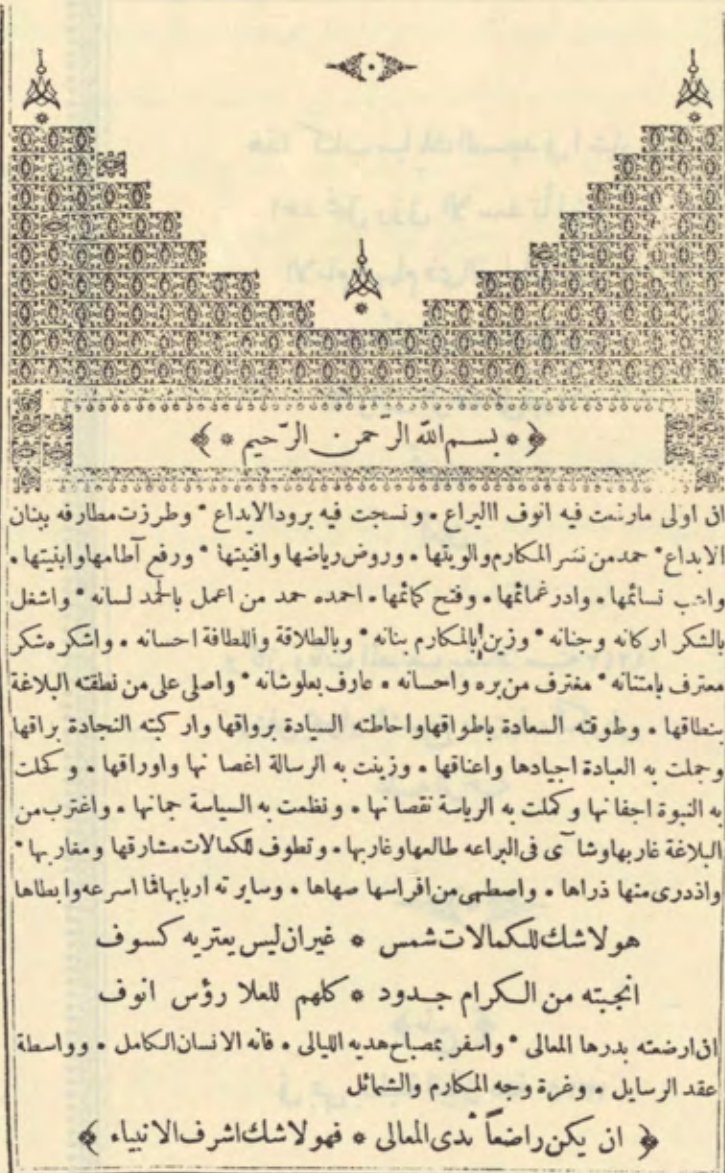 ﴿ * بسم الله الرّحمن الرّحيم * ﴾
ان اولى مارثمت فيه انوف االيراع * ونسجت فيه برود الابداع * وطرزت مطارفه ببنان
الابداع * حمد من نشر المكارم والويتها * وروض رياضها وافنيتها * ورفع آطامها وابنيتها *
نسائمها * وادر غمائمها * وفتح كمائمها * احمده حمد من اعمل بالحمد لسانه * واشغل
بالشكر اركانه وجنانه * وزين بالمكارم بنانه * وبالطلاقة واللطافة احسانه * واشكره شكر
معترف بامتنانه * مغترف من بره واحسانه * عارف بعلو شانه * واصلى على من نطقته البلاغة
بنطاقها * وطوقته السعادة باطواقها واحاطته السيادة برواقها واركبته النجادة براقها
وجملت به العبادة اجيادها واعناقها * وزينت به الرسالة اغصا نها واوراقها * وكحلت
به النبوة اجفا نها وكملت به الرياسة نقصا نها * ونظمت به السياسة جمانها * واغترب من
البلاغة غاربها وشا آى فى البراعه طالعها وغاربها * وتطوف للكمالات مشارقها ومغاربها *
واذدرى منها ذراها * واصطهى من افراسها صهاها * وسايرته اربابها فما اسرعه وابطاها
هو لاشك للكمالات شمس * غير ان ليس يعتريه كسوف
انجبته من الكرام جدود * كلهم للعلا رؤس انوف
ان ارضعته بدرها المعالى * واسفر بمصباح هديه الليالى * فانه الانسان الكامل * وواسطة
عقد الرسايل * وغرة وجه المكارم والشمائل
﴿ ان يكن راضعاً ثدى المعالى * فهو لاشك اشرف الانبياء ﴾